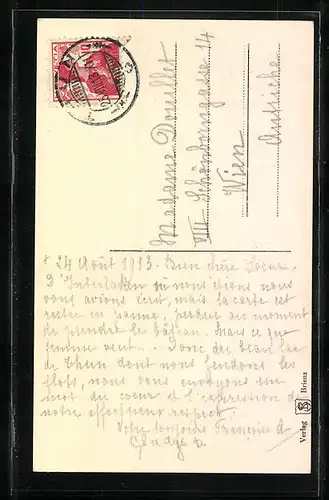 Madame Douillet
VIII Schönborngasse 14
Wien
Autriche
24 Août 1913. Bien chère Soeur,
D'Interlaken où nous étions nous
vous avions écrit, mais la carte est
restée en panne, perdue au moment
de prendre le bâteau. Mais ce que
femme veut... Donc du beau lac
de Thun dont nous fendons les
flots, nous vous envoyons un
mot du coeur et l'expression de
notre affectueux respect.
Votre toujours
Verlag S Brienz